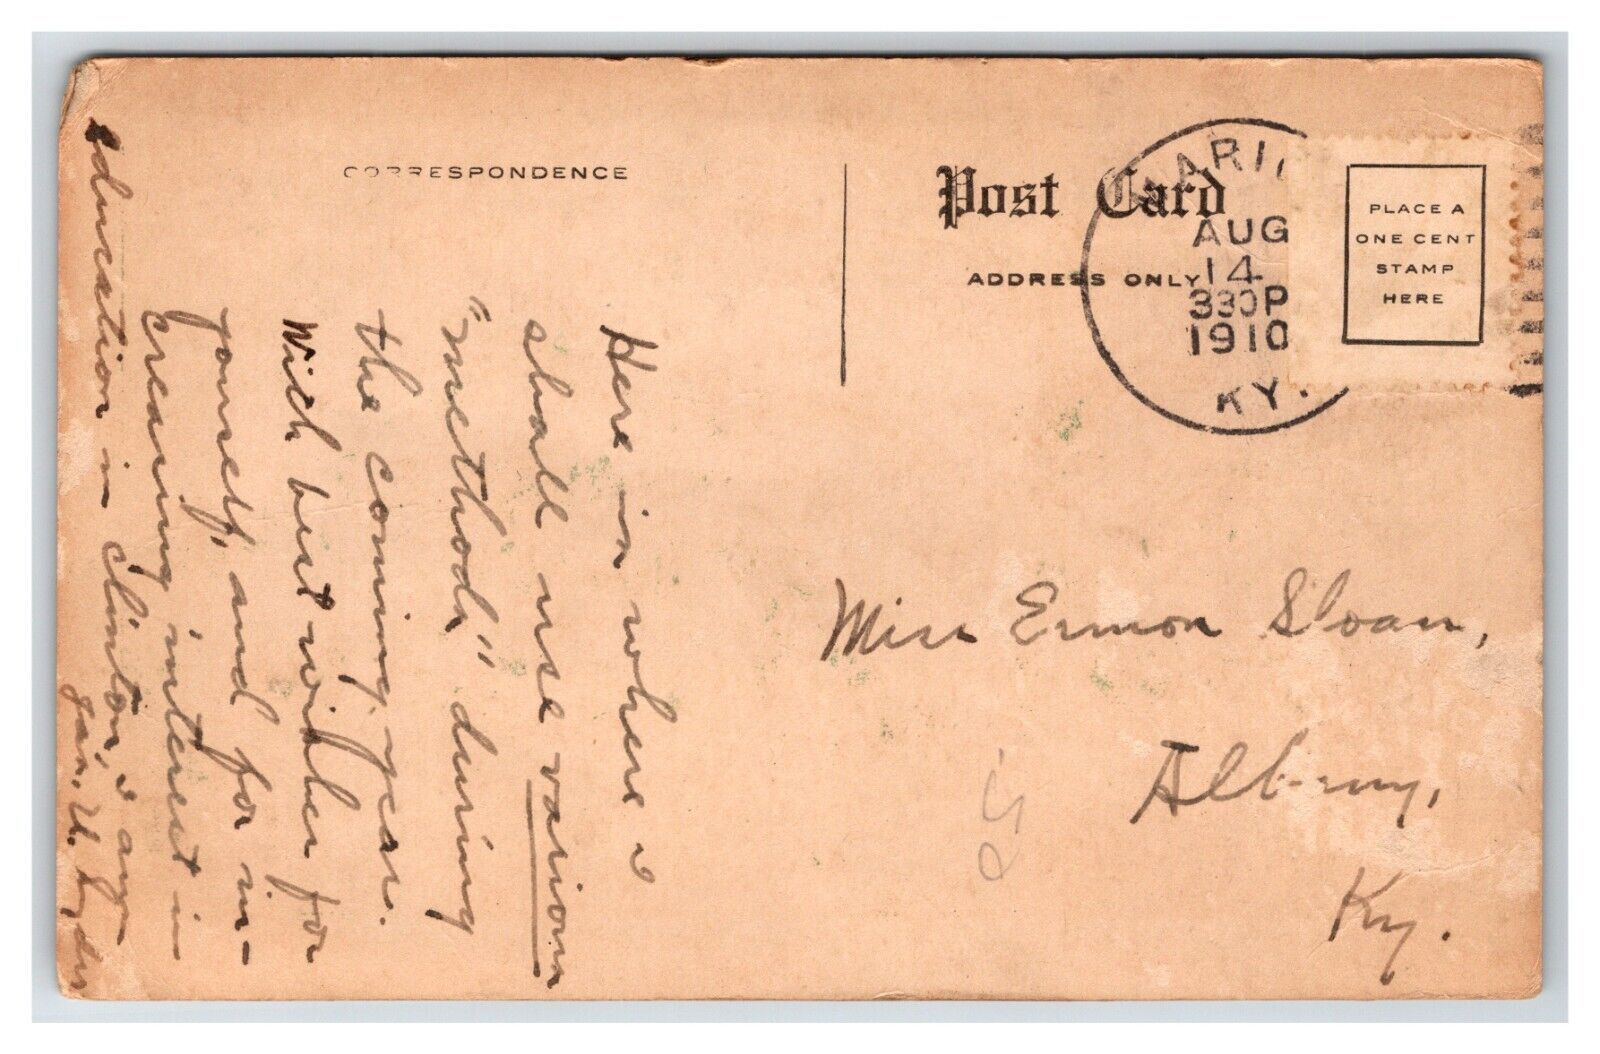 CORRESPONDENCE
Here is where I
shall use various
"methods" during
the coming year.
With best wishes for
yourself, and for in-
creasing interest in
education in Clinton, I am
Jas. H.
Post Card
ADDRESS ONLY
MARI
AUG
14
330P
1910
KY.
PLACE A
ONE CENT
STAMP
HERE
Miss Ermon Sloan,
Albany,
Ky.